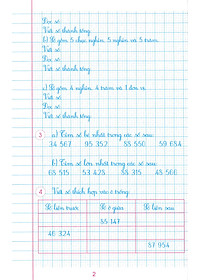 Đọc số:
Viết số thành tổng:
b) Số gồm 5 chục nghìn, 5 nghìn và 5 trăm.
Viết số:
Đọc số:
Viết số thành tổng:
c) Số gồm 4 nghìn, 4 trăm và 1 đơn vị.
Viết số:
Đọc số:
Viết số thành tổng:
3 a) Tìm số bé nhất trong các số sau:
34 567 95 352 55 550 59 654
b) Tìm số lớn nhất trong các số sau:
65 515 53 425 55 315 45 560
4 Viết số thích hợp vào ô trống:
Số liền trước Số ở giữa Số liền sau
55 147
46 324
57 954
2